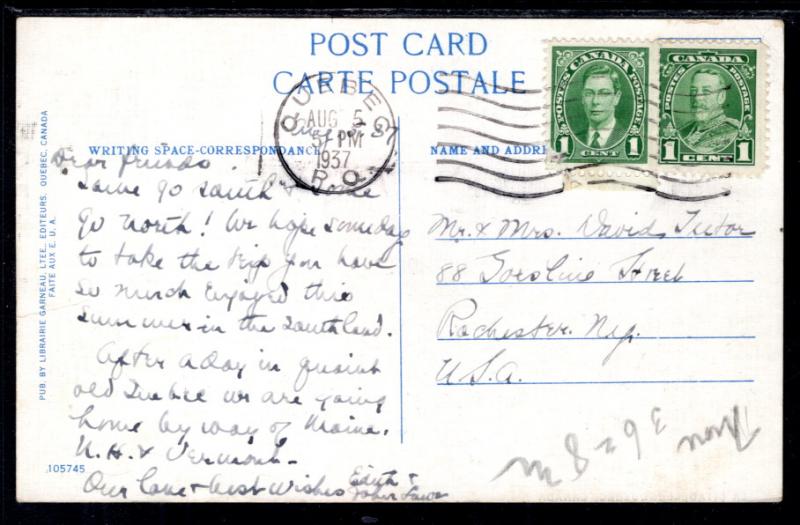 POST CARD
CARTE POSTALE
QUEBEC
AUG 5
PM
1937
P.Q.
POSTES CANADA POSTAGE
1 CENT 1
CANADA
POSTES POSTAGE
1 CENT 1
WRITING SPACE-CORRESPONDANCE
NAME AND ADDRE
Dear friends
Some go South & some
go North! We hope someday
to take the trip you have
so much enjoyed this
summer in the Southland.
After a day in quaint
old Quebec we are going
home by way of Maine,
N.H. & Vermont.
Our love & best wishes Edith &
John
Mr. & Mrs. David
88 Street
Rochester. N.Y.
U.S.A.
PUB. BY LIBRAIRIE GARNEAU, LTEE., EDITEURS, QUEBEC, CANADA
FAITE AUX E. U. A.
105745